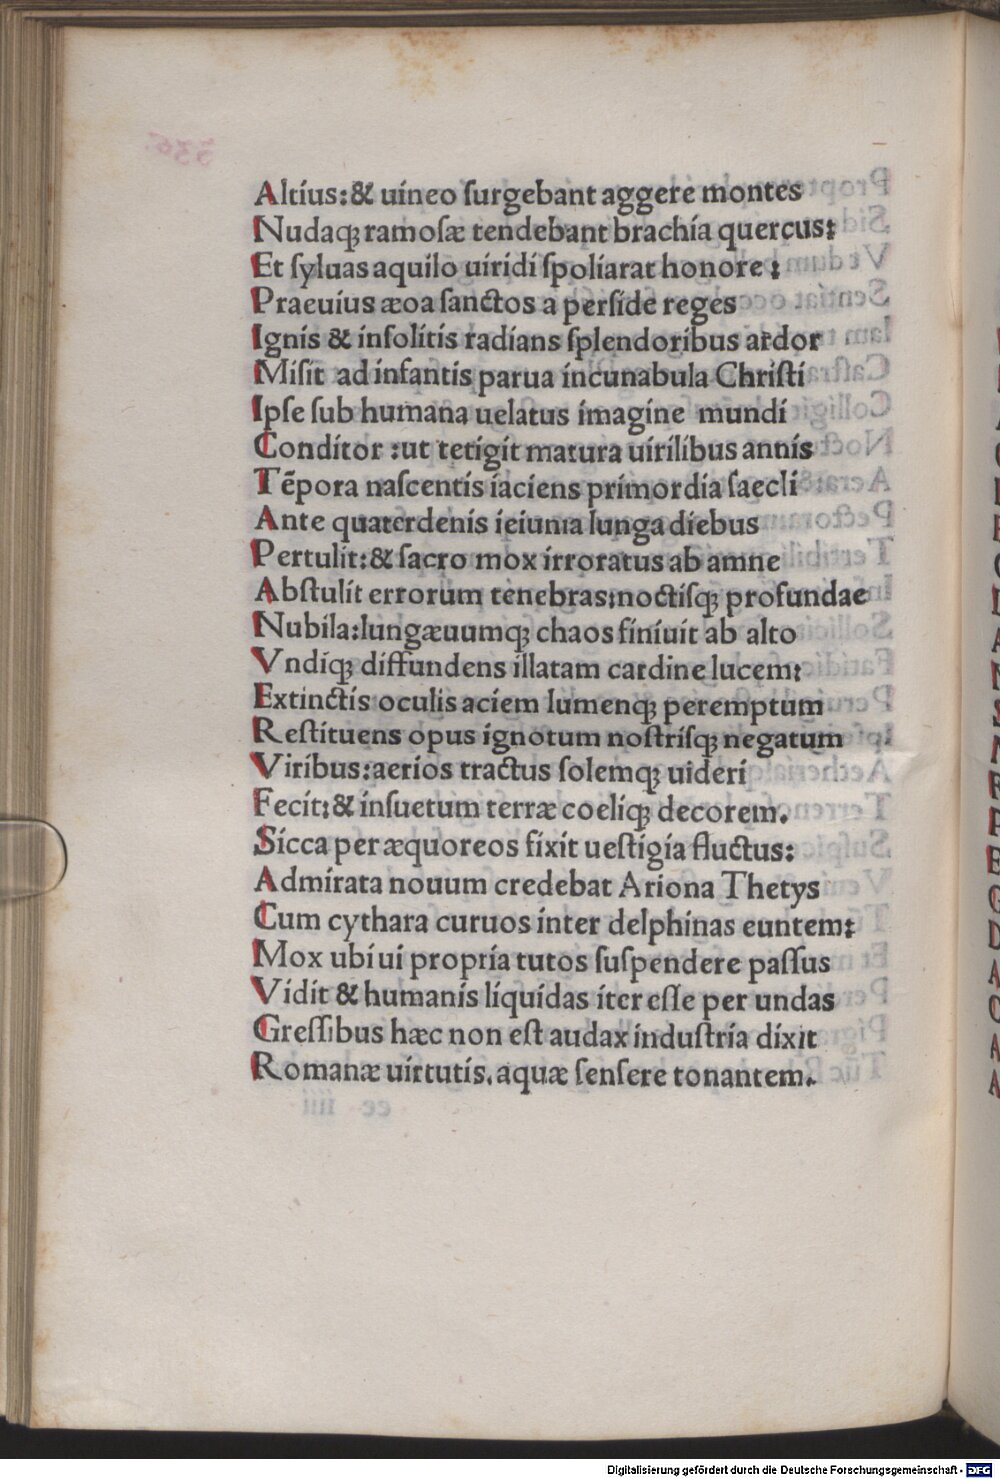 Altius:& uineo ſurgebant aggere montes
Nudaqꝫ ramoſæ tendebant brachia quercus:
Et ſyluas aquilo uiridi ſpoliarat honore:
Praeuius æoa ſanctos a perſide reges
Ignis & inſolitis radians ſplendoribus ardor
Miſit ad infantis parua incunabula Chriſti
Ipſe ſub humana uelatus imagine mundi
Conditor :ut tetigit matura uirilibus annis
Tēpora naſcentis iaciens primordia ſaecli
Ante quaterdenis ieiunia lunga diebus
Pertulit:& ſacro mox irroratus ab amne
Abſtulit errorum tenebras:noctiſqꝫ profundae
Nubila:lungæuumqꝫ chaos finiuit ab alto
Vndiqꝫ diffundens illatam cardine lucem:
Extinctis oculis aciem lumenqꝫ peremptum
Reſtituens opus ignotum noſtriſqꝫ negatum
Viribus:aerios tractus ſolemqꝫ uideri
Fecit:& inſuetum terræ coeliqꝫ decorem.
Sicca per æquoreos fixit ueſtigia fluctus:
Admirata nouum credebat Ariona Thetys
Cum cythara curuos inter delphinas euntem:
Mox ubi ui propria tutos ſuſpendere paſſus
Vidit & humanis liquidas iter eſſe per undas
Greſſibus hæc non eſt audax induſtria dixit
Romanæ uirtutis.aquæ ſenſere tonantem.
Digitalisierung gefördert durch die Deutsche Forschungsgemeinschaft - DFG